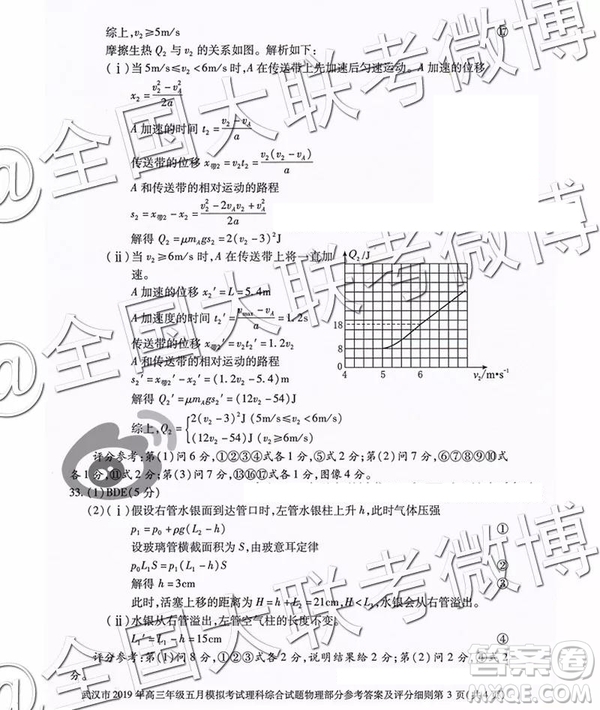 综上,v₂≥5m/s ⑰
摩擦生热 Q₂ 与 v₂ 的关系如图。解析如下:
(ⅰ)当5m/s≤v₂<6m/s时,A在传送带上先加速后匀速运动。A加速的位移
x₂=(v₂²-v_A²)/2a
A加速的时间 t₂=(v₂-v_A)/a
传送带的位移 x带2=v₂t₂=v₂(v₂-v_A)/a
A和传送带的相对运动的路程
s₂=x带2-x₂=(v₂²-2v_Av₂+v_A²)/2a
解得 Q₂=μm_Ags₂=2(v₂-3)²J
(ⅱ)当 v₂≥6m/s时,A在传送带上将一直加
速。
A加速的位移 x₂′=L=5.4m
A加速度的时间 t₂′=(vmax-v_A)/a=1.2s
传送带的位移 x带2′=v₂t₂′=1.2v₂
A和传送带的相对运动的路程
s₂′=x带2′-x₂′=(1.2v₂-5.4)m
解得 Q₂′=μm_Ags₂′=(12v₂-54)J
综上,Q₂={2(v₂-3)²J (5m/s≤v₂<6m/s)
(12v₂-54)J (v₂≥6m/s)
Q₂/J
18
8
0
4 5 6 v₂/m·s⁻¹
评分参考:第(1)问6分,①②③④式各1分,⑤式2分;第(2)问7分,⑥⑦⑧⑨⑩⑪⑫式
各1分;第(3)问7分,⑬⑯⑰式各1分,图像4分。
33.(1)BDE(5分)
(2)(ⅰ)假设右管水银面到达管口时,左管水银柱上升h,此时气体压强
p₁=p₀+ρg(L₂-h) ①
设玻璃管横截面积为S,由玻意耳定律
p₀L₁S=p₁(L₁-h)S ②
解得 h=3cm
此时,活塞上移的距离为 H=h+L₂=21cm,水银会从右管溢出。 ③
(ⅱ)水银从右管溢出后,左管空气柱的长度不变。
L₁′=L₁-h=15cm ④
武汉市2019年高三年级五月模拟考试理科综合试题物理部分参考答案及评分细则第3页(共4页)
@全国大联考微博
@全国大联考微博